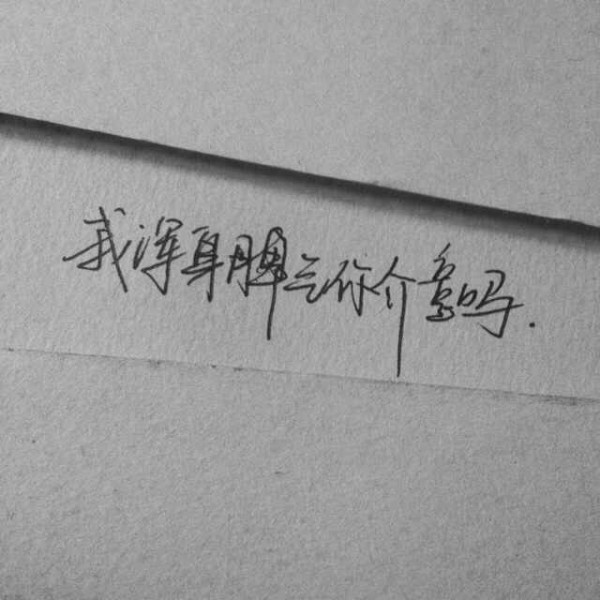 我浑身脾气你介意吗.